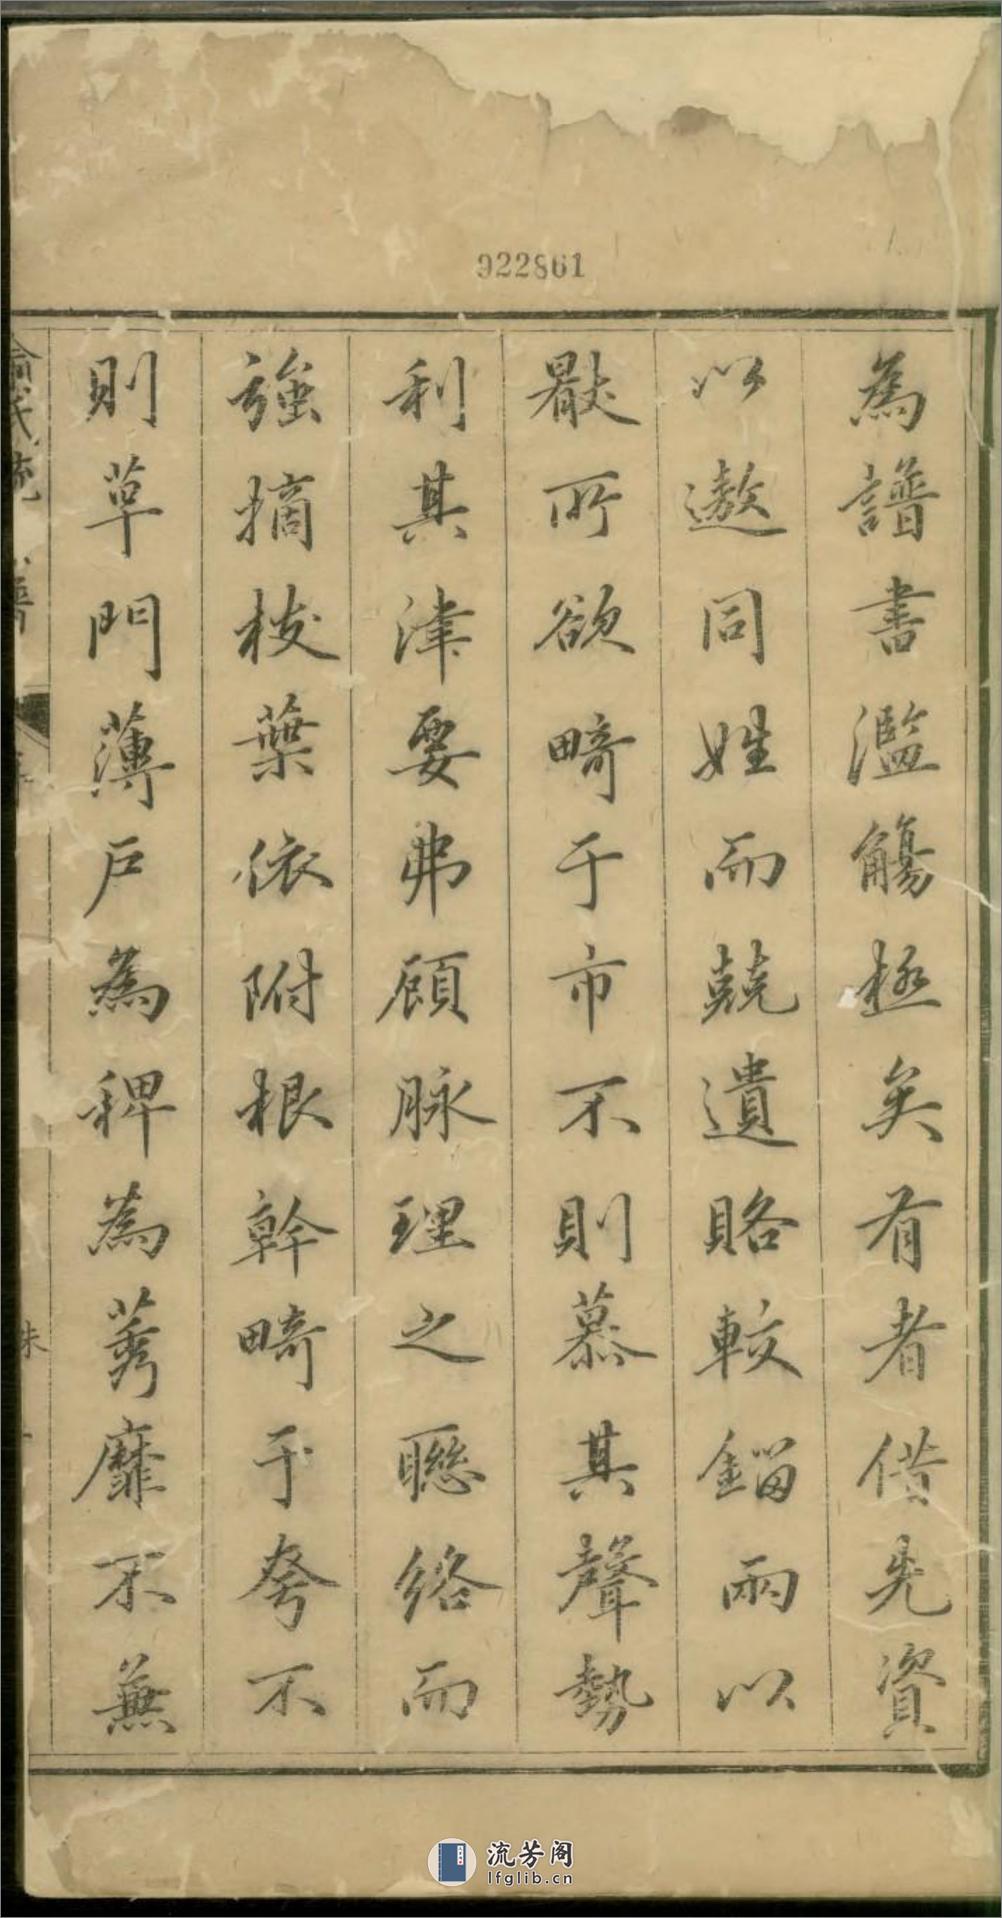 922861
為譜書濫觴極矣有者借先資
以遨同姓而兢遺賂較錙兩以
厭所欲畸于市不則慕其聲勢
利其津要弗顧脉理之聯絡而
強摘枝葉依附根幹畸于夸不
則草門薄戶為稗為莠靡不無
俞氏統譜
流芳阁
lfglib.cn